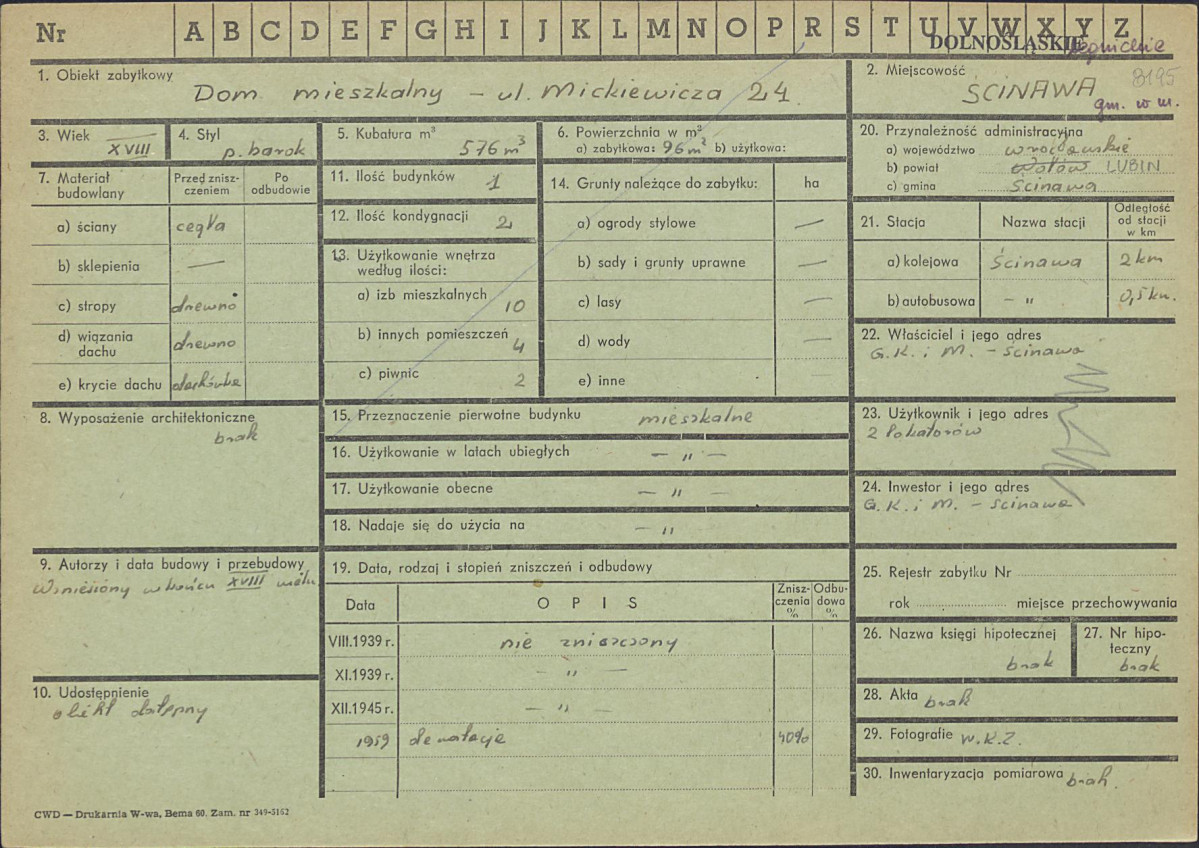 Nr A B C D E F G H I J K L M N O P R S T U V W X Y Z
DOLNOŚLĄSKIE legnickie
1. Obiekt zabytkowy
Dom mieszkalny – ul. Mickiewicza 24.
2. Miejscowość 8195
ŚCINAWA
gm. w m.
3. Wiek
XVIII
4. Styl
p. barok
5. Kubatura m³
576 m³
6. Powierzchnia w m²
a) zabytkowa: 96 m² b) użytkowa:
7. Materiał budowlany
Przed znisz-
czeniem
Po
odbudowie
a) ściany cegła
b) sklepienia —
c) stropy drewno
d) wiązania
dachu drewno
e) krycie dachu dachówka
8. Wyposażenie architektoniczne
brak
9. Autorzy i data budowy i przebudowy
Wzniesiony w końcu XVIII wieku
10. Udostępnienie
obiekt dostępny
11. Ilość budynków 1
12. Ilość kondygnacji 2
13. Użytkowanie wnętrza
według ilości:
a) izb mieszkalnych 10
b) innych pomieszczeń 4
c) piwnic 2
14. Grunty należące do zabytku: ha
a) ogrody stylowe —
b) sady i grunty uprawne —
c) lasy —
d) wody —
e) inne
15. Przeznaczenie pierwotne budynku mieszkalne
16. Użytkowanie w latach ubiegłych — " —
17. Użytkowanie obecne — " —
18. Nadaje się do użycia na — "
19. Data, rodzaj i stopień zniszczeń i odbudowy
Data OPIS
Znisz-
czenia
%
Odbu-
dowa
%
VIII.1939 r. nie zniszczony
XI.1939 r. — " —
XII.1945 r. — " —
1959 dewastacje 40%
20. Przynależność administracyjna
a) województwo wrocławskie
b) powiat Wołów LUBIN
c) gmina Ścinawa
21. Stacja Nazwa stacji
Odległość
od stacji
w km
a) kolejowa Ścinawa 2 km
b) autobusowa – " 0,5 km.
22. Właściciel i jego adres
G.K. i M. – Ścinawa
23. Użytkownik i jego adres
2 lokatorów
24. Inwestor i jego adres
G.K. i M. – Ścinawa
25. Rejestr zabytku Nr
rok miejsce przechowywania
26. Nazwa księgi hipotecznej
brak
27. Nr hipo-
teczny
brak
28. Akta brak
29. Fotografie W.K.Z.
30. Inwentaryzacja pomiarowa brak.
CWD — Drukarnia W-wa, Bema 60. Zam. nr 349-5162